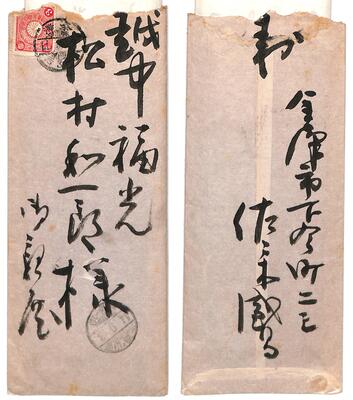 越中福光
松村和一郎様
御親展
封
金澤市下今町二三
佐々木